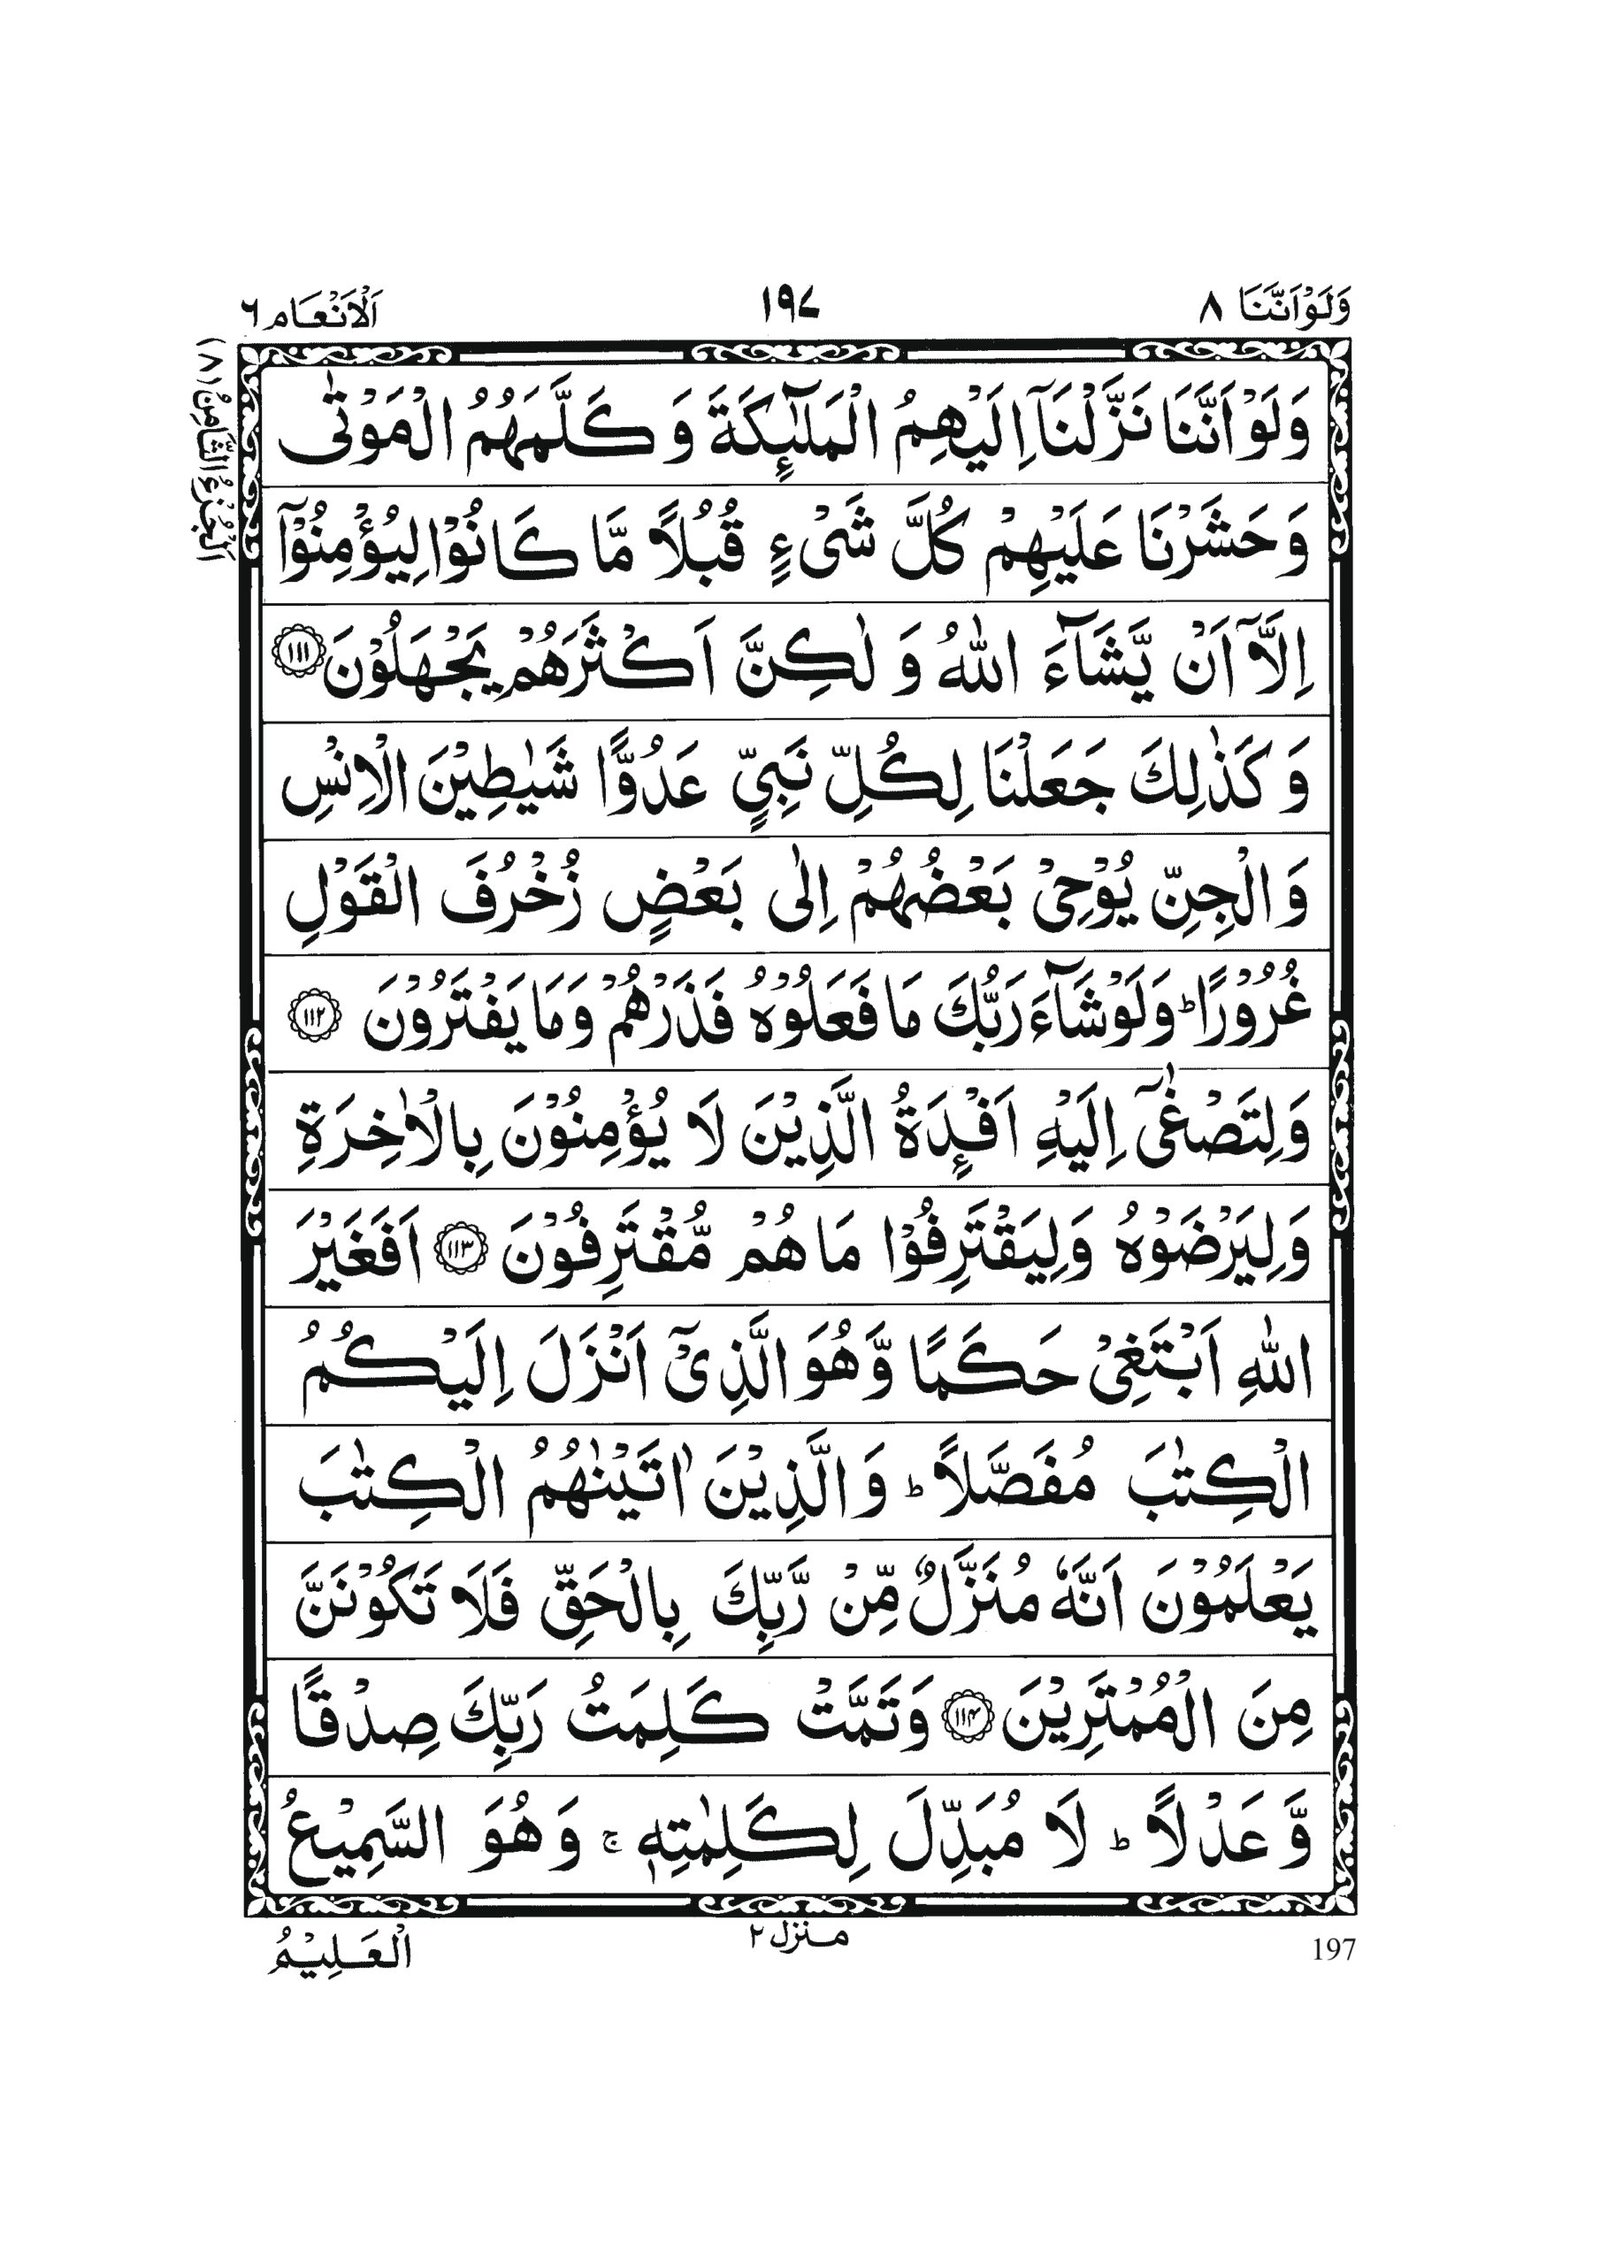 وَلَوْاَنَّنَا ٨
١٩٧
اَلْاَنْعَام ٦
اَلْجُزْءُ الثَّامِنُ (٨)
وَلَوْ اَنَّنَا نَزَّلْنَآ اِلَيْهِمُ الْمَلٰٓئِكَةَ وَ كَلَّمَهُمُ الْمَوْتٰى
وَحَشَرْنَا عَلَيْهِمْ كُلَّ شَىْءٍ قُبُلًا مَّا كَانُوْا لِيُؤْمِنُوْٓا
اِلَّآ اَنْ يَّشَآءَ اللّٰهُ وَ لٰكِنَّ اَكْثَرَهُمْ يَجْهَلُوْنَ ١١١
وَ كَذٰلِكَ جَعَلْنَا لِكُلِّ نَبِيٍّ عَدُوًّا شَيٰطِيْنَ الْاِنْسِ
وَ الْجِنِّ يُوْحِىْ بَعْضُهُمْ اِلٰى بَعْضٍ زُخْرُفَ الْقَوْلِ
غُرُوْرًا ؕ وَلَوْ شَآءَ رَبُّكَ مَا فَعَلُوْهُ فَذَرْهُمْ وَمَا يَفْتَرُوْنَ ١١٢
وَلِتَصْغٰٓى اِلَيْهِ اَفْـِٕدَةُ الَّذِيْنَ لَا يُؤْمِنُوْنَ بِالْاٰخِرَةِ
وَلِيَرْضَوْهُ وَلِيَقْتَرِفُوْا مَا هُمْ مُّقْتَرِفُوْنَ ١١٣ اَفَغَيْرَ
اللّٰهِ اَبْتَغِىْ حَكَمًا وَّهُوَ الَّذِىْٓ اَنْزَلَ اِلَيْكُمُ
الْكِتٰبَ مُفَصَّلًا ؕ وَ الَّذِيْنَ اٰتَيْنٰهُمُ الْكِتٰبَ
يَعْلَمُوْنَ اَنَّهٗ مُنَزَّلٌ مِّنْ رَّبِّكَ بِالْحَقِّ فَلَا تَكُوْنَنَّ
مِنَ الْمُمْتَرِيْنَ ١١٤ وَتَمَّتْ كَلِمَتُ رَبِّكَ صِدْقًا
وَّ عَدْلًا ؕ لَا مُبَدِّلَ لِكَلِمٰتِهٖ ۚ وَهُوَ السَّمِيْعُ
الْعَلِيْمُ
منزل ٢
197